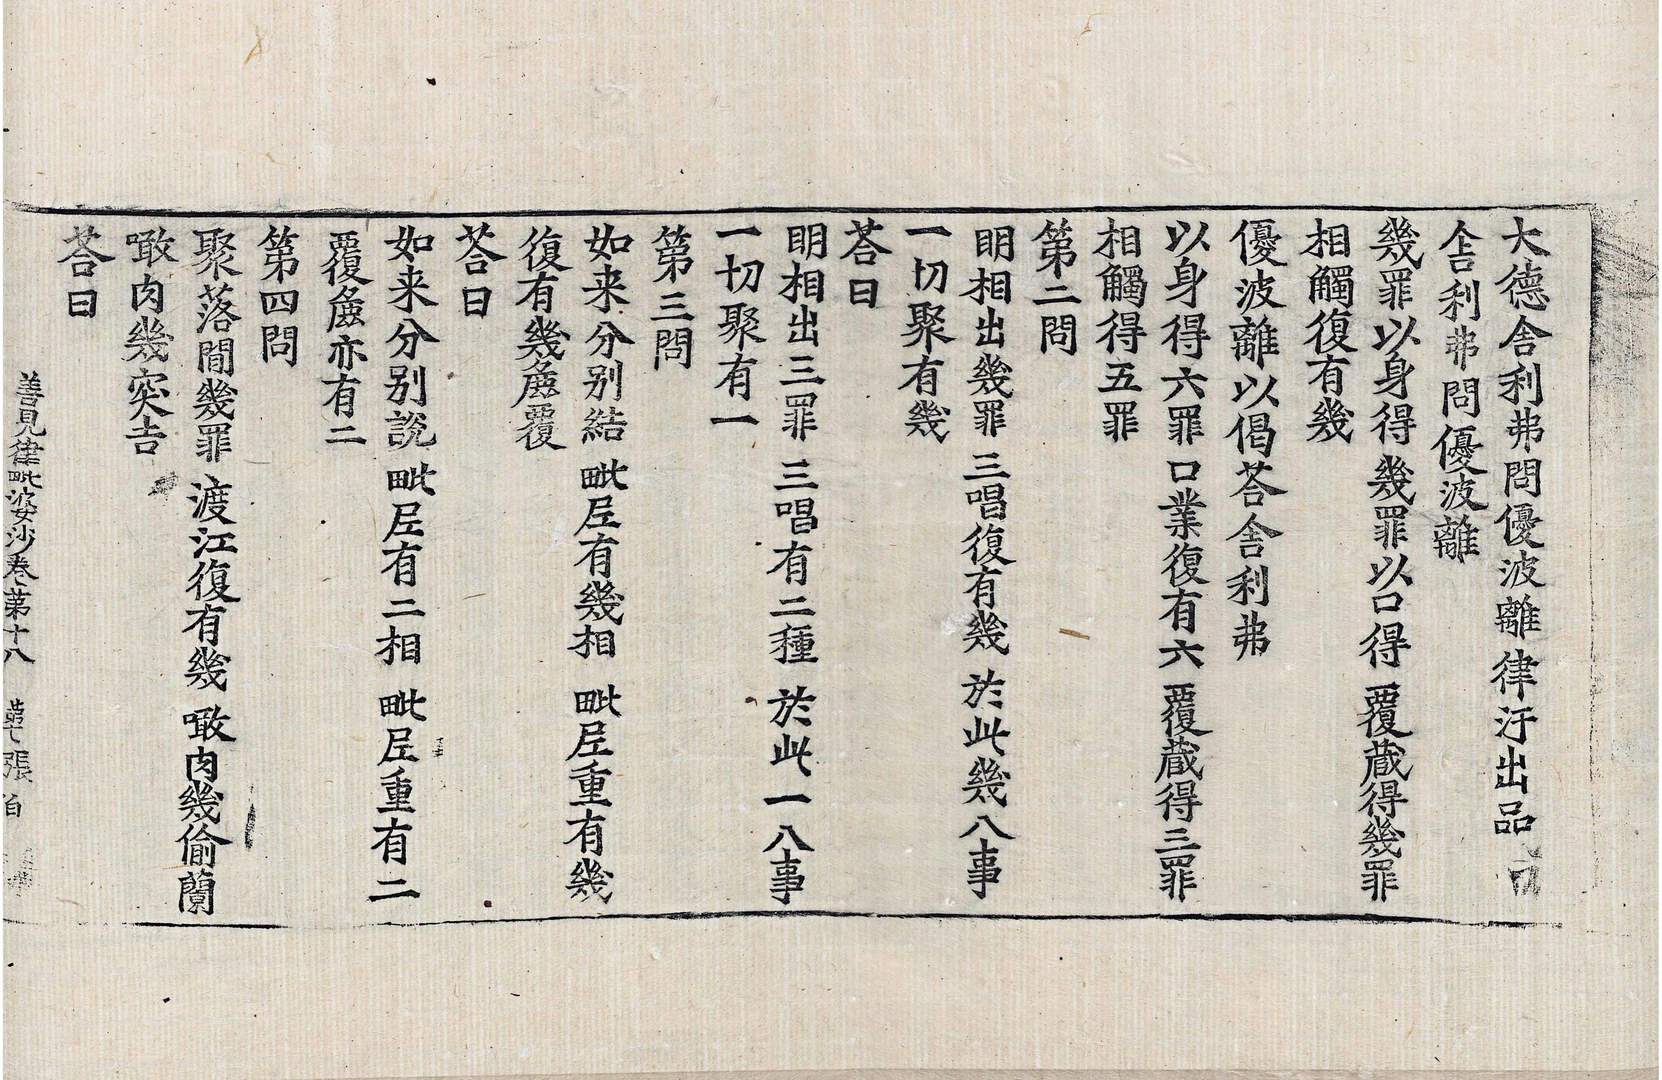 大德舎利弗問優波離律汙出品
舎利弗問優波離
幾罪以身得 幾罪以口得 覆蔵得幾罪
相觸復有幾
優波離以偈荅舎利弗
以身得六罪 口業復有六 覆蔵得三罪
相觸得五罪
第二問
明相出幾罪 三唱復有幾 於此幾八事
一切聚有幾
荅曰
明相出三罪 三唱有二種 於此一八事
一切聚有一
第三問
如来分別結 毗尼有幾相 毗尼重有幾
復有幾麁覆
荅曰
如来分別説 毗尼有二相 毗尼重有二
覆麁亦有二
第四問
聚落間幾罪 渡江復有幾 噉肉幾偷蘭
噉肉幾突吉
荅曰
善見律毗婆沙卷第十八 張